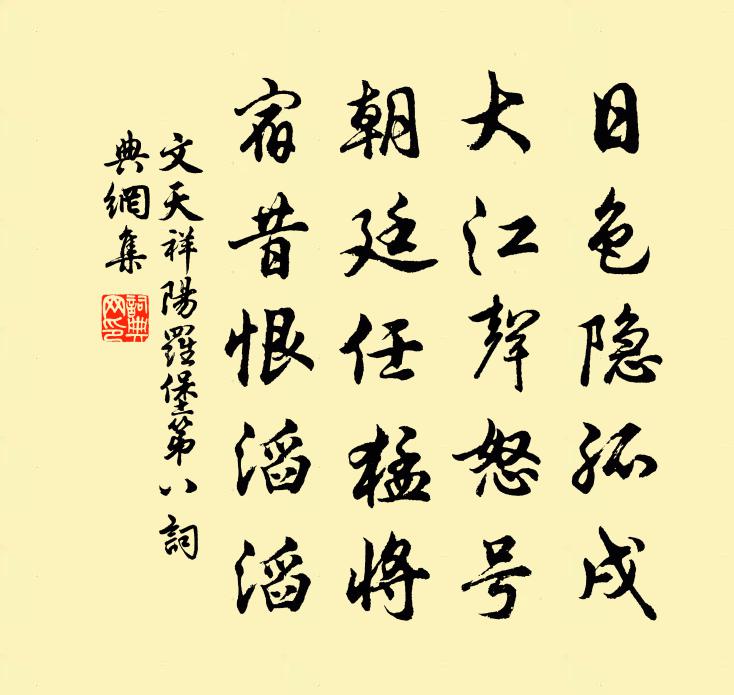 日色隐孤戍
大江声怒号
朝廷任猛將
宿昔恨滔滔
文天祥陽羅堡第八詞
典網集
詞典網印